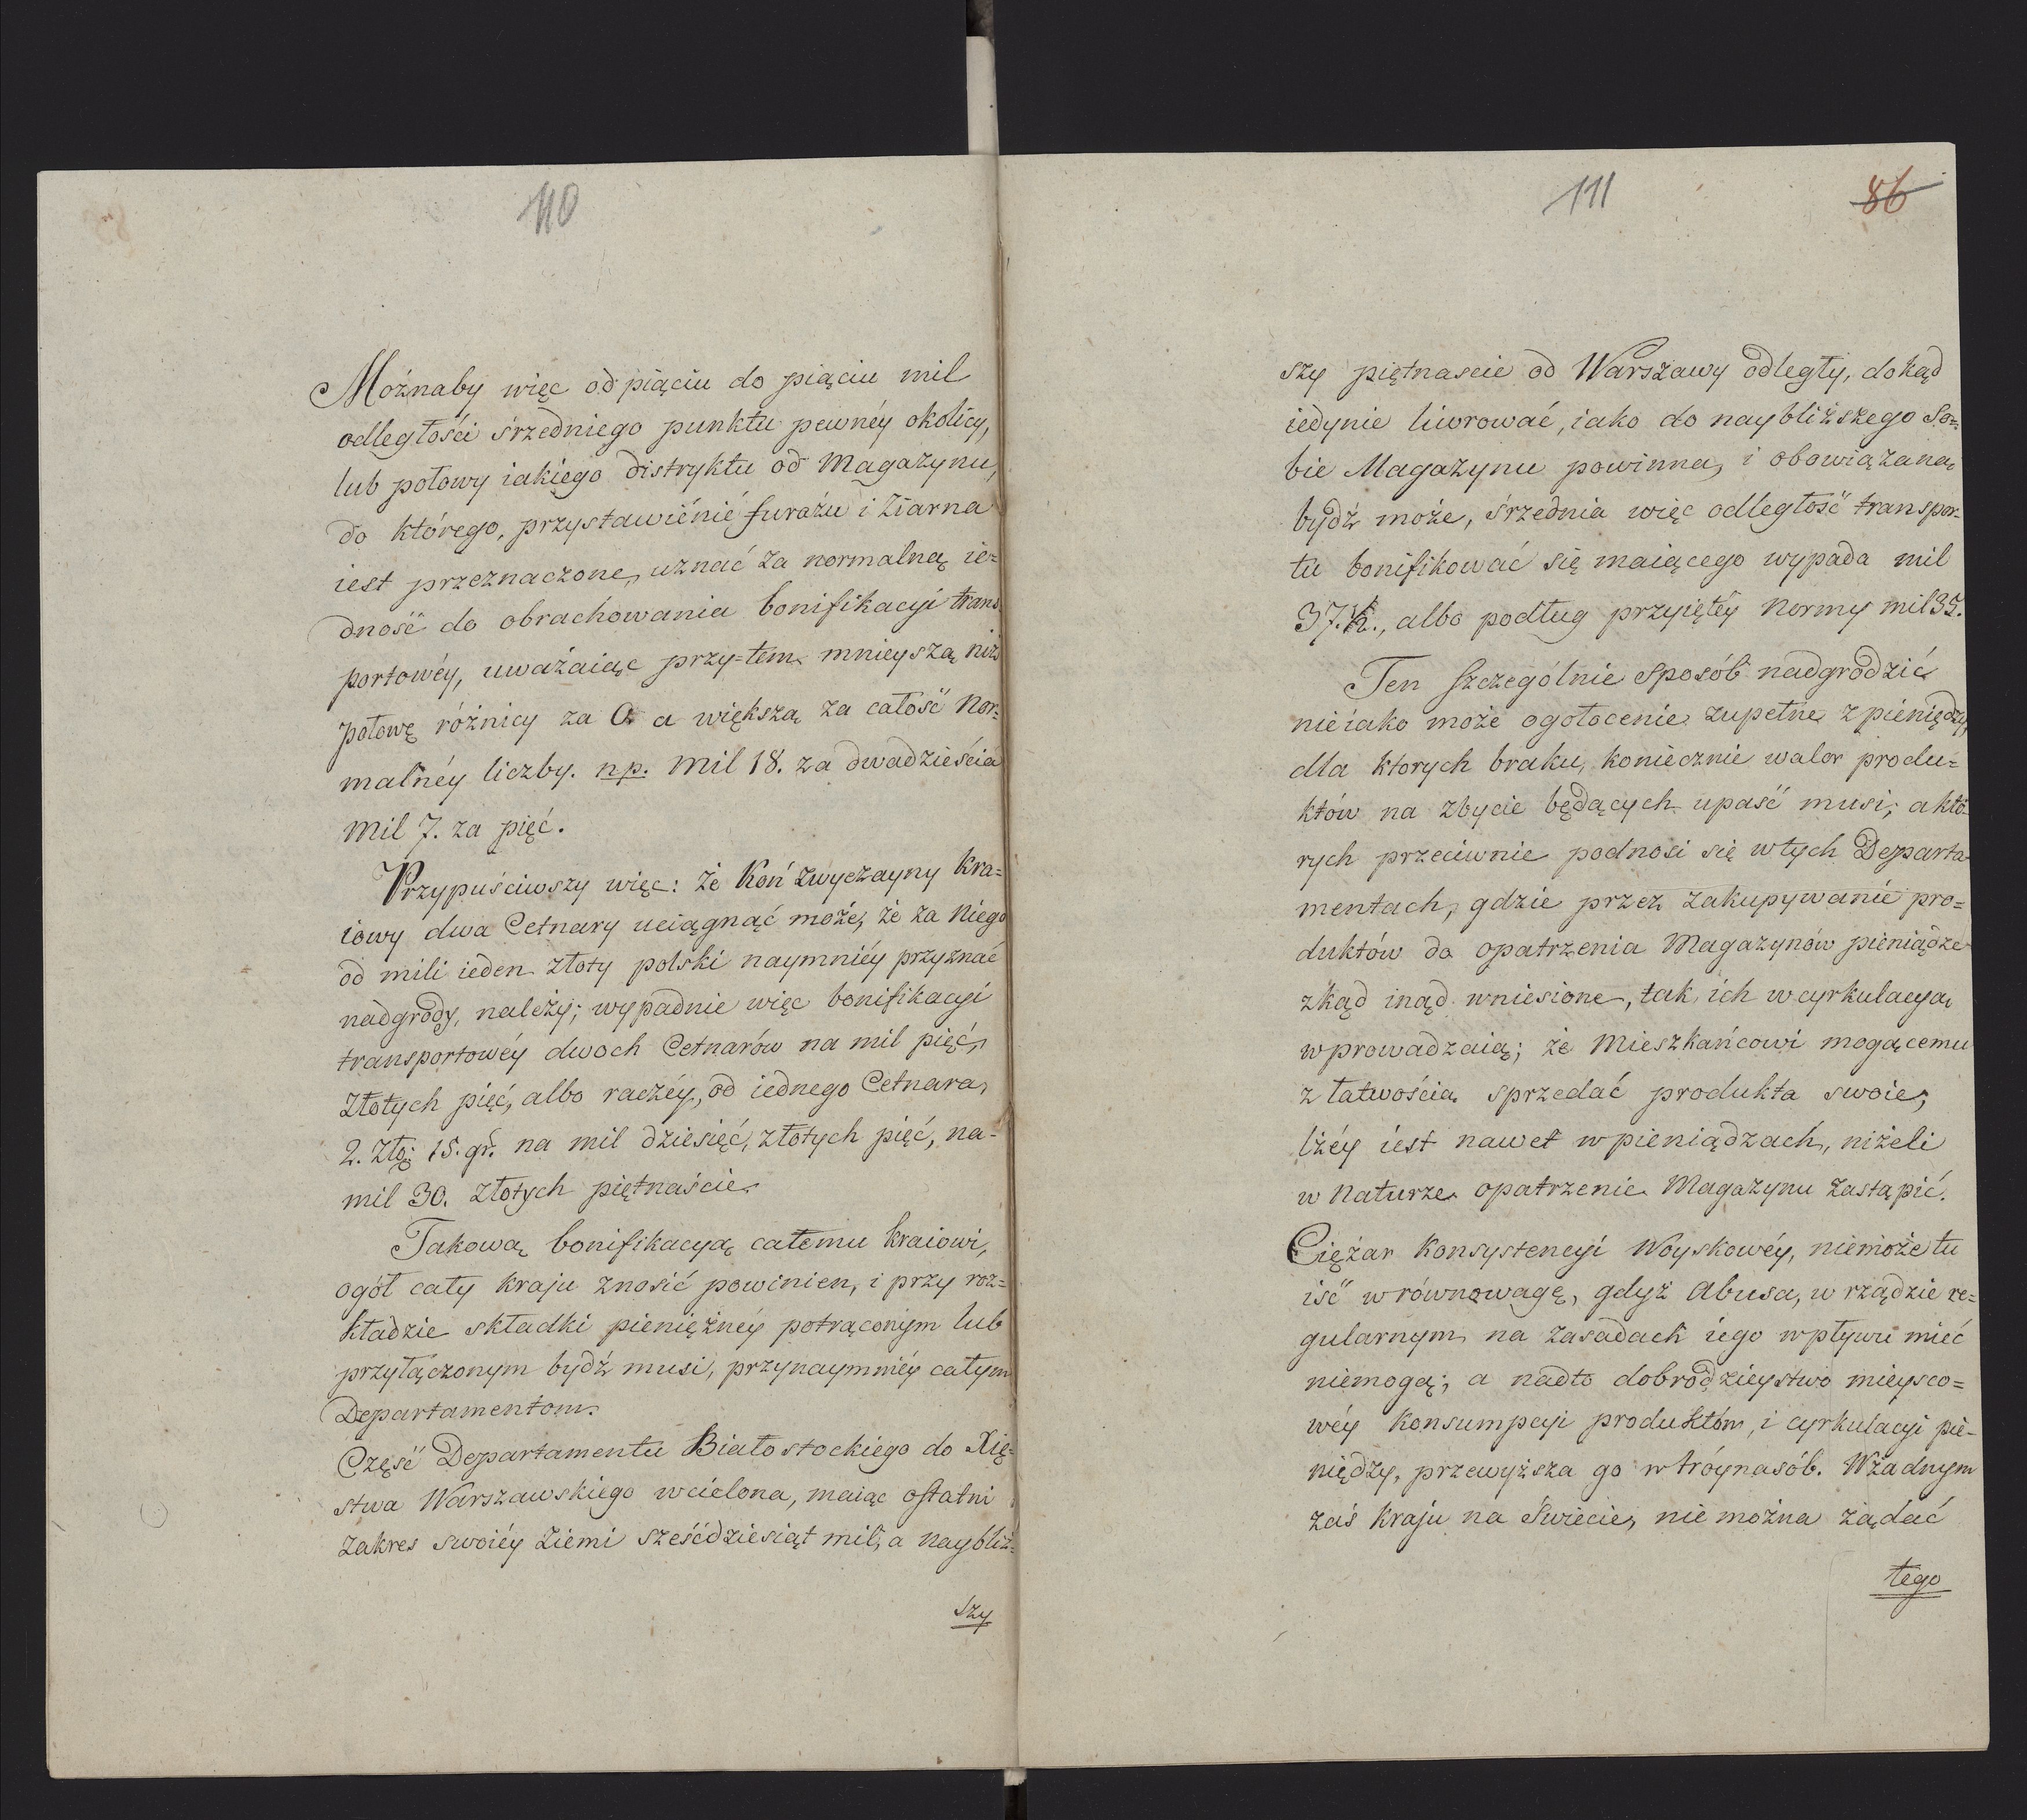 110
Możnaby więc od piąciu do piąciu mil
odległości śrzedniego punktu pewnéy okolicy,
lub połowy iakiego distryktu od Magazynu,
do którego, przystawiénié furażu i Ziarna
iest przeznaczone, uznać za normalną ie=
dność do obrachowania bonifikacyi trans
portowéy, uważaiąc przy=tem mnieyszą niż
połowę różnicy za 0. a większą za całość Nor=
malnéy liczby. np. Mil 18. za dwadzieścia
Mil 7. za pięć.
Przypuściwszy więc: że Koń zwyczayny Kra=
iowy dwa Cetnary uciągnąć może, że za Niego
od mili ieden złoty polski naymniéy przyznać
nadgrody, należy; wypadnie więc bonifikacyi
transportowéy dwoch Cetnarów na mil pięć,
Złotych pięć, albo raczéy, od iednego Cetnara,
2. Złł: 15. gr. na mil dziesięć, złotych pięć, na=
mil 30. Złotych piętnaście.
Takową bonifikacyą całemu kraiowi,
ogół cały kraju znosić powinien, i przy roz=
kładzie składki pieniężnéy potrąconym lub
przyłączonym bydź musi, przynaymniéy całym
Departamentom.
Część Departamentu Białostockiego do Xię=
stwa Warszawskiego wcielona, maiąc ostatni
zakres swoiéy Ziemi sześćdziesiąt mil, a naybliż=
szy
111
86
szy piętnascie od Warszawy odległy, dokąd
iedynie liworować, iako do naybliższego So=
bie Magazynu powinna, i obowiązaną
bydź może, śrzednia więc odległość transpor=
tu bonifikować się maiącego wypada mil
37.½., albo podług przyiętéy Normy mil 35.
Ten szczególnie sposób nadgrodzić
nieiako może ogołocenie zupełne z pieniędzy,
dla ktorych braku, koniecznie walor produ=
któw na zbycie będących upaść musi; a któ=
rych przeciwnie podnosi się w tych Departa
mentach, gdzie przez zakupywanie pro=
duktów do opatrzenia Magazynów pieniądze
zkąd inąd wniesione, tak, ich w cyrkulacyą
wprowadzaią; że Mieszkańcowi mogącemu
z łatwością sprzedać produkta swoie,
lżéy iest nawet w pieniądzach, niżeli
w Naturze opatrzenie Magazynu zastąpić.
Ciężar Konsystencyi Woyskowéy, niemoże tu
iść w równowagę, gdyż Abusa, w rządzie re=
gularnym na zasadach iego wpływu mieć
niemogą; a nadto dobrodzieystwo mieysco=
wéy Konsumpcyi produktów, i cyrkulacyi pie=
niędzy, przewyższa go w tróynasób. W żadnym
zaś kraju na Świecie, nie można żądać
tego